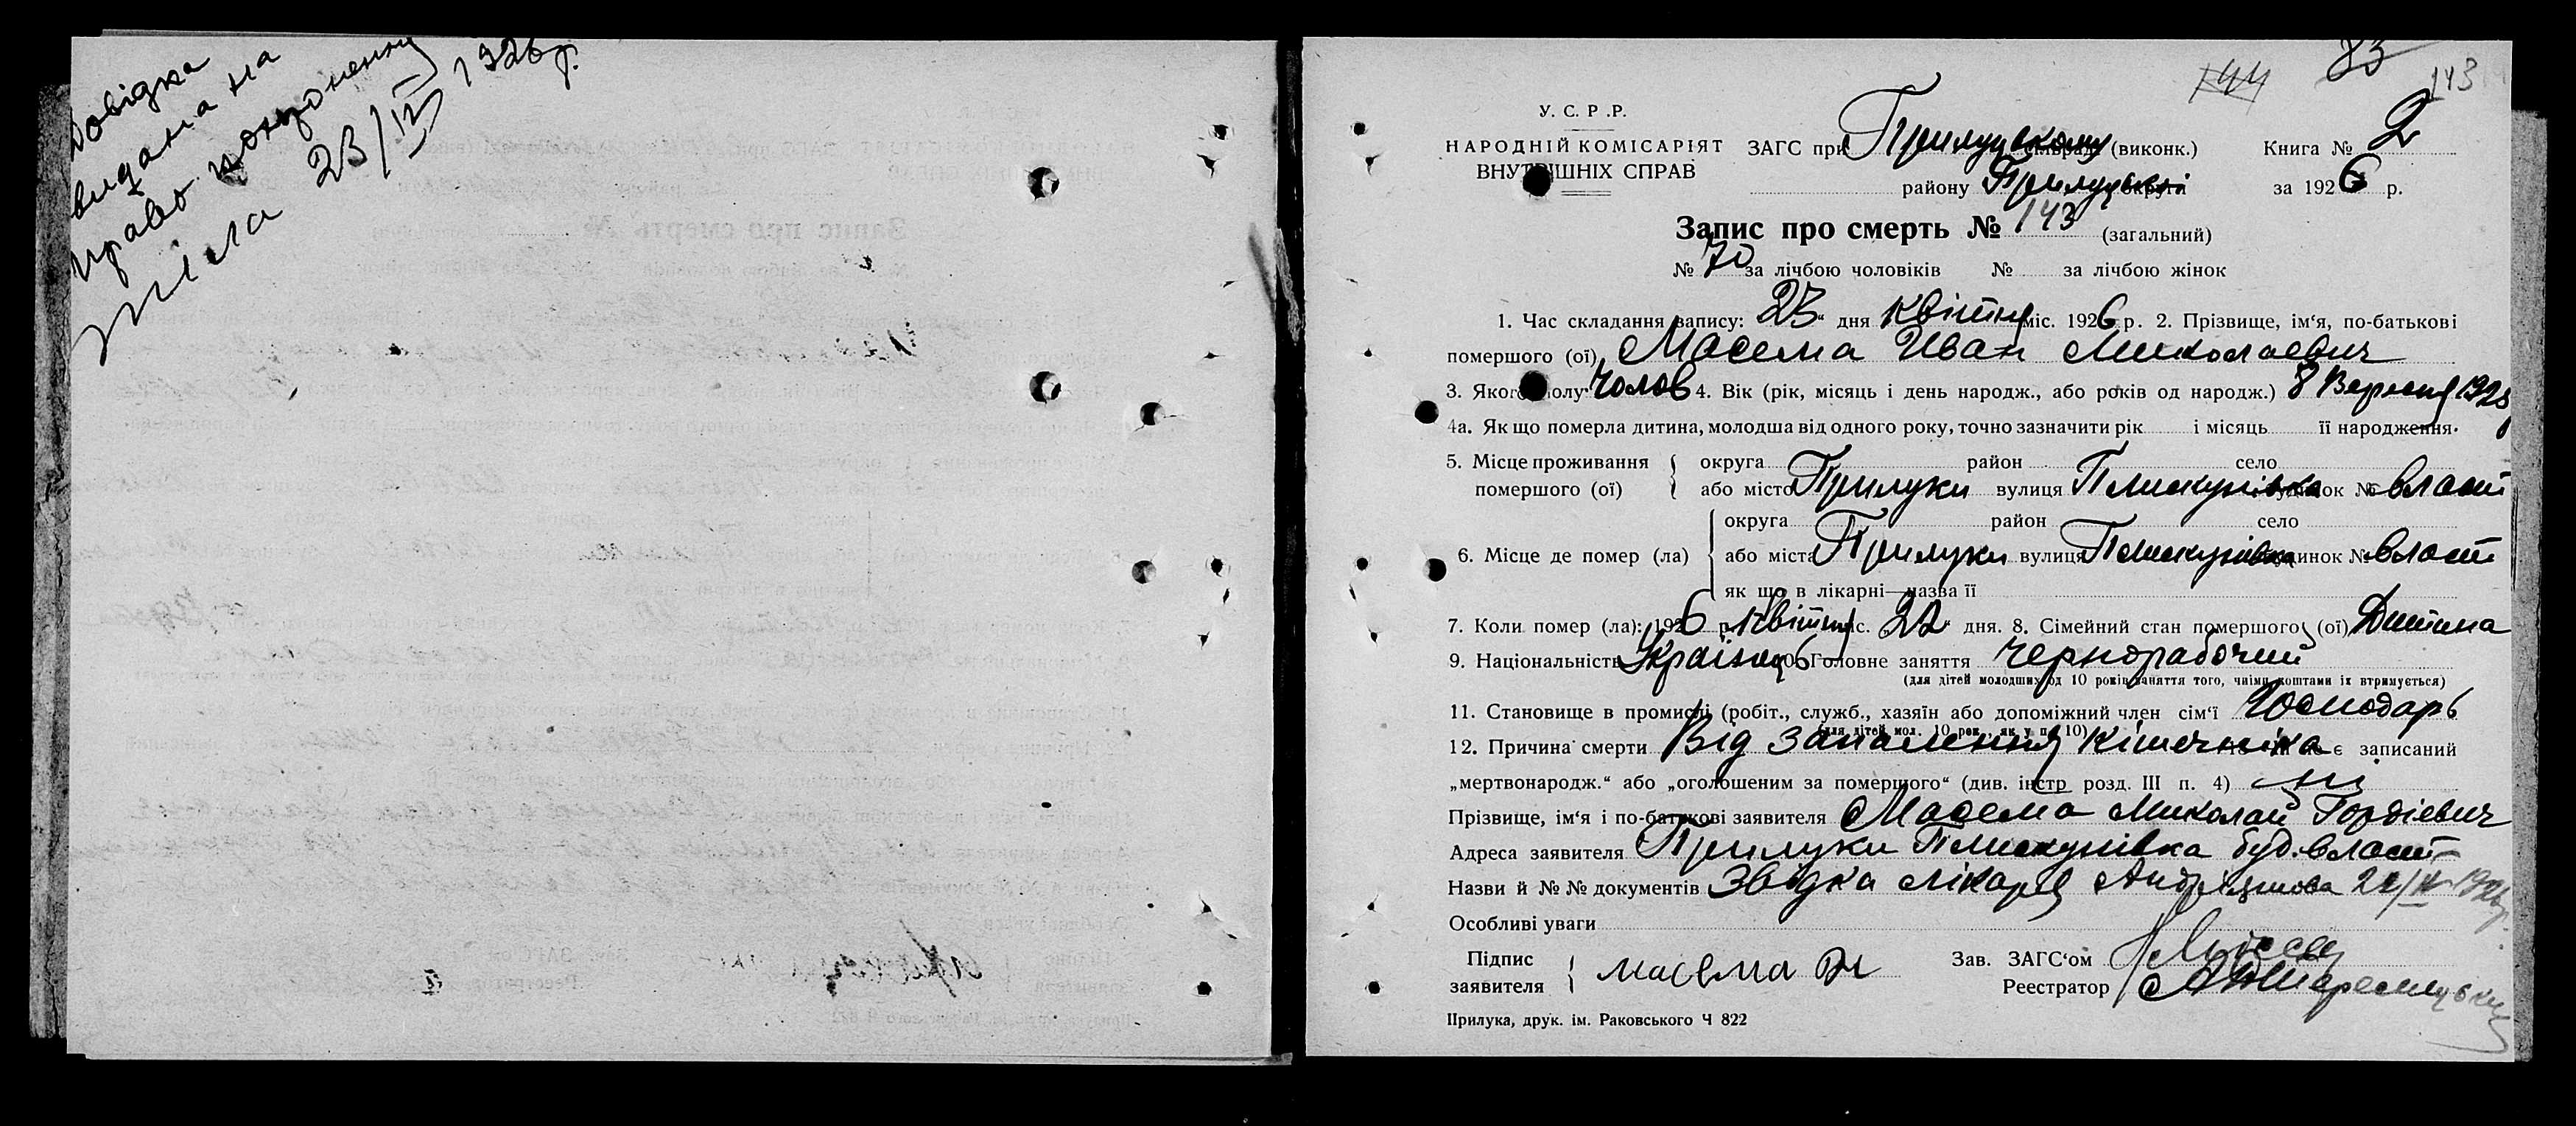 Довідка
видана на
право похоронення
тіла 23/IV 1926 р.
83
144
143
У. С. Р. Р.
НАРОДНІЙ КОМІСАРІЯТ
ВНУТРІШНІХ СПРАВ
ЗАГС при Прилуцькому (виконк.) Книга № 2
району Прилуцькій округи за 1926 р.
Запис про смерть № 143 (загальний)
№ 70 за лічбою чоловіків № за лічбою жінок
1. Час складання запису: 23 “ дня Квітня міс. 1926 р. 2. Прізвище, ім‘я, по-батькові
помершого (ої) Масема Иван Миколаевич
3. Якого полу Чолов 4. Вік (рік, місяць і день народж., або років од народж.) 8 Вересня 192
4а. Як що померла дитина, молодша від одного року, точно зазначити рік і місяць її народження.
5. Місце проживання помершого (ої) округа район село
або місто Прилуки вулиця Плискунівка будинок № власн
6. Місце де помер (ла) округа район село
або міста Прилуки вулиця Плискунівка будинок № власн
як що в лікарні—назва її
7. Коли помер (ла): 1926 р. Квітня міс. „22“ дня. 8. Сімейний стан помершого (ої) Дитина
9. Національність Українец 10. Головне заняття чернорабочий
(для дітей молодших од 10 років заняття того, чиїми коштами їх втримується)
11. Становище в промислі (робіт., служб., хазяїн або допоміжний член сім‘ї Господарь
(для дітей мол. 10 рок., як у п. 10)
12. Причина смерти Від запалення кішечніка є записаний
„мертвонародж.“ або „оголошеним за помершого“ (див. інстр розд. III п. 4) ні
Прізвище, ім‘я і по-батькові заявителя Масема Миколай Гордіевич
Адреса заявителя Прилуки Плискунівка буд. власн
Назви й №№ документів Звідка лікаря 1926 р.
Особливі уваги
Підпис заявителя масема Зав. ЗАГС‘ом
Реестратор
Прилука, друк. ім. Раковського Ч 822